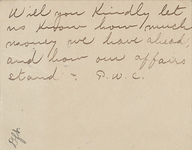 Will you Kindly let
us Know how much
money we have ahead,
and how our affairs
stand - P. W. C.